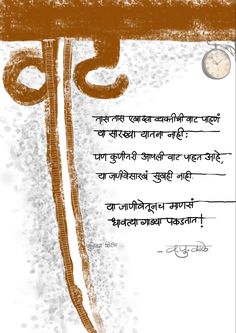 वाट
तास तास एखाद्या व्यक्तीची वाट पाहणं
या सारख्या यातना नाही;
पण कुणीतरी आपली वाट पाहत आहे,
या जाणीवेसारखं सुखही नाही.
या जाणीवेतूनच माणसं
धावत्या गाड्या पकडतात!
- व.पु. काळे